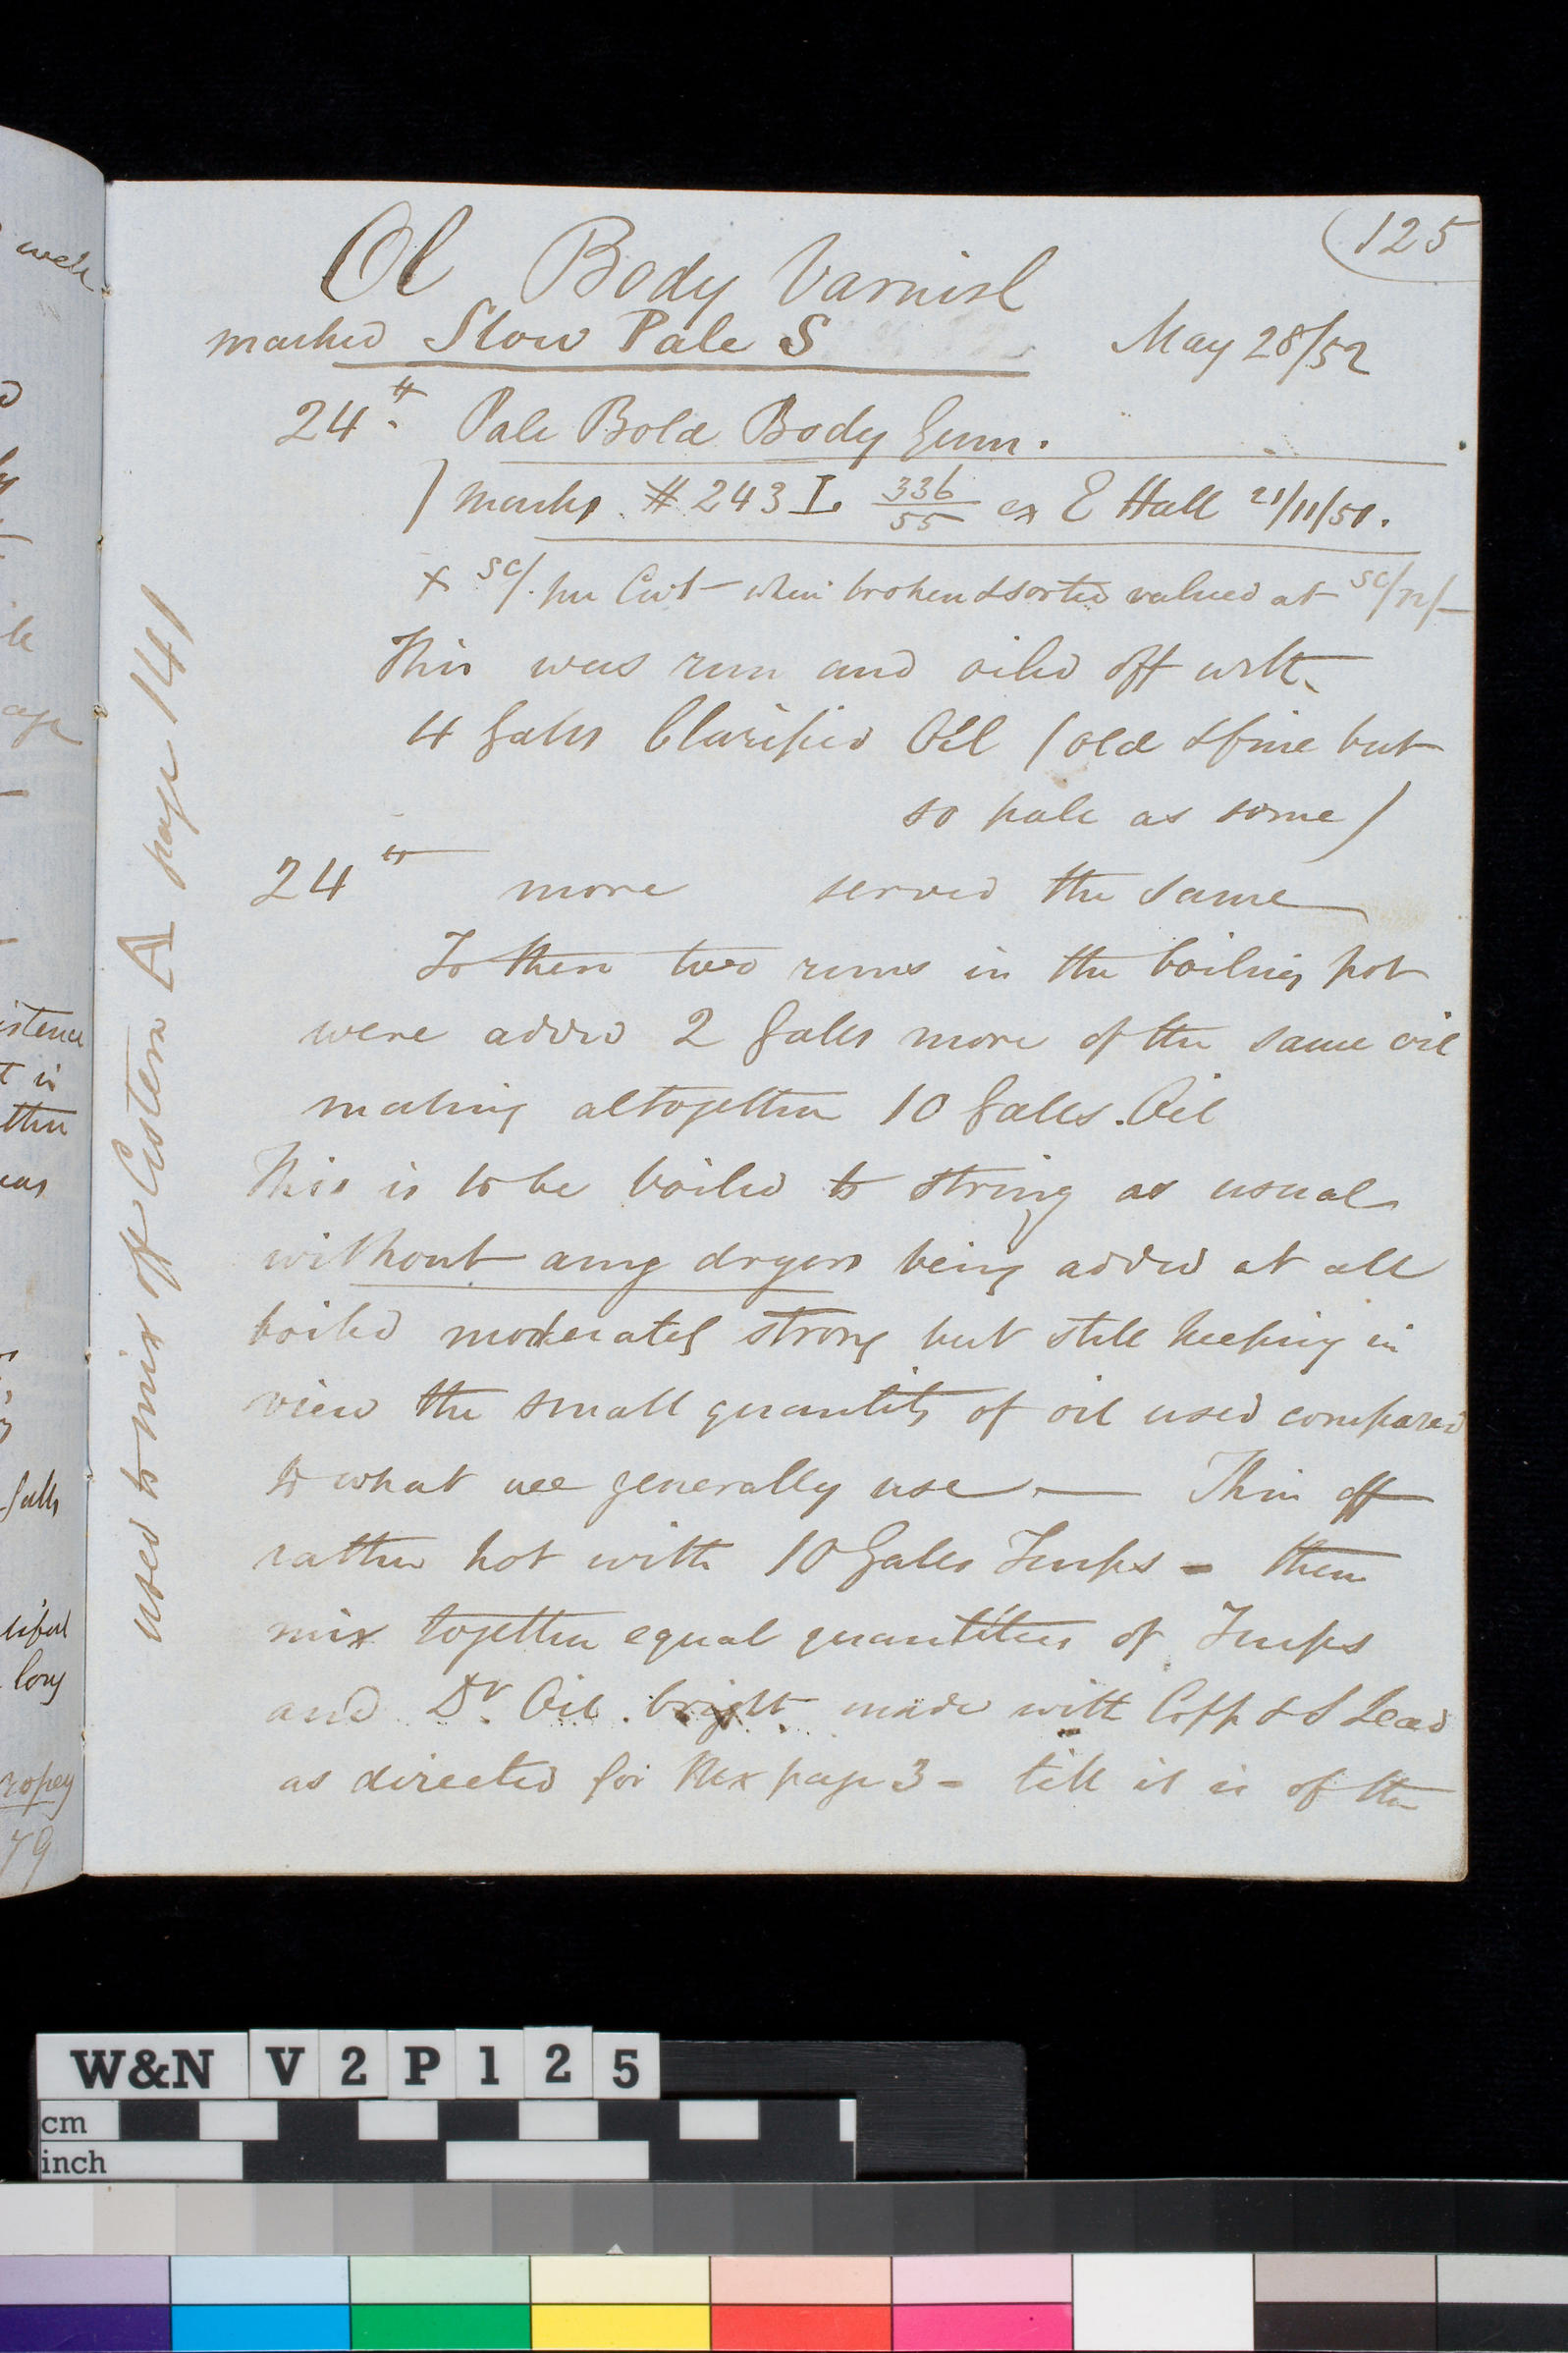 (125
Ol Body Varnish
marked Slow Pale S May 28/52
24 lb. Pale Bold Body Gum.
(marks # 243 I. 336/55 ex E Hall 21/11/51.
x sc/. per Cwt when broken & sorted valued at sc/n/-
This was run and oiled off with
4 Galls Clarified Oil (old & fine but
so pale as some)
24 lb more served the same
To these two runs in the boiling pot
were added 2 Galls more of the same oil
making altogether 10 Galls. Oil
This is to be boiled to string as usual
without any dryers being added at all
boiled moderately strong but still keeping in
view the small quantity of oil used compared
to what we generally use — Thin off
rather hot with 10 Galls Turps - then
mix together equal quantities of Turps
and Dr. Oil bright made with Copp & S Lead
as directed for page 3 - till it is of the
used to mix off Cistern A page 141
well
age
istence
t in
ther
Galls
long
ropey
79
W&N V2P125
cm
inch